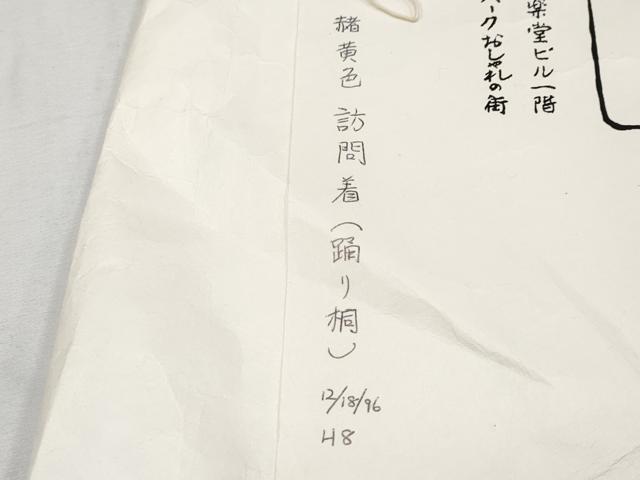 楽堂ビル一階
パークおしゃれの街
赭黄色 訪問着(踊り桐)
12/18/96
H8